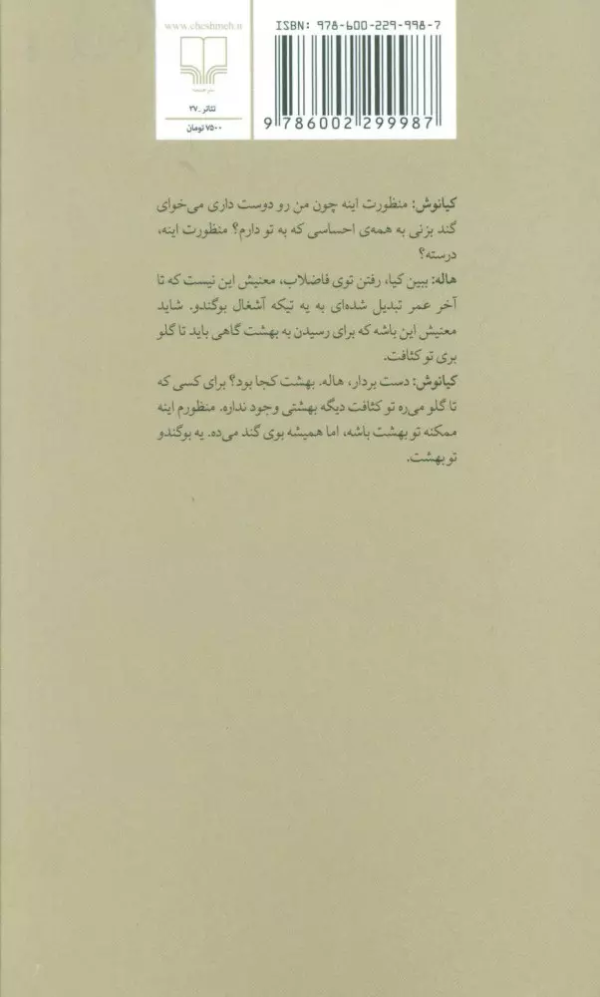 www.cheshmeh.ir
ISBN: 978-600-229-998-7
تئاتر ـ ۲۷
۷۵۰۰ تومان
9 786002 299987
کیانوش: منظورت اینه چون من رو دوست داری می‌خوای
گند بزنی به همه‌ی احساسی که به تو دارم؟ منظورت اینه،
درسته؟
هاله: ببین کیا، رفتن توی فاضلاب، معنیش این نیست که تا
آخر عمر تبدیل شده‌ای به یه تیکه آشغال بوگندو. شاید
معنیش این باشه که برای رسیدن به بهشت گاهی باید تا گلو
بری تو کثافت.
کیانوش: دست بردار، هاله. بهشت کجا بود؟ برای کسی که
تا گلو می‌ره تو کثافت دیگه بهشتی وجود نداره. منظورم اینه
ممکنه تو بهشت باشه، اما همیشه بوی گند می‌ده. یه بوگندو
تو بهشت.